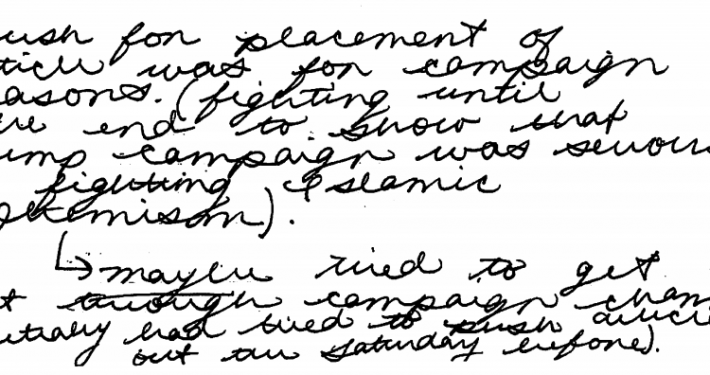 ush for placement of
ticle was for campaign
easons. (fighting until
the end to show that
ump campaign was seriou
fighting Islamic
extremism).
↳ maybe tried to get
it through campaign chan
initially had tried to push article
out the Saturday before).